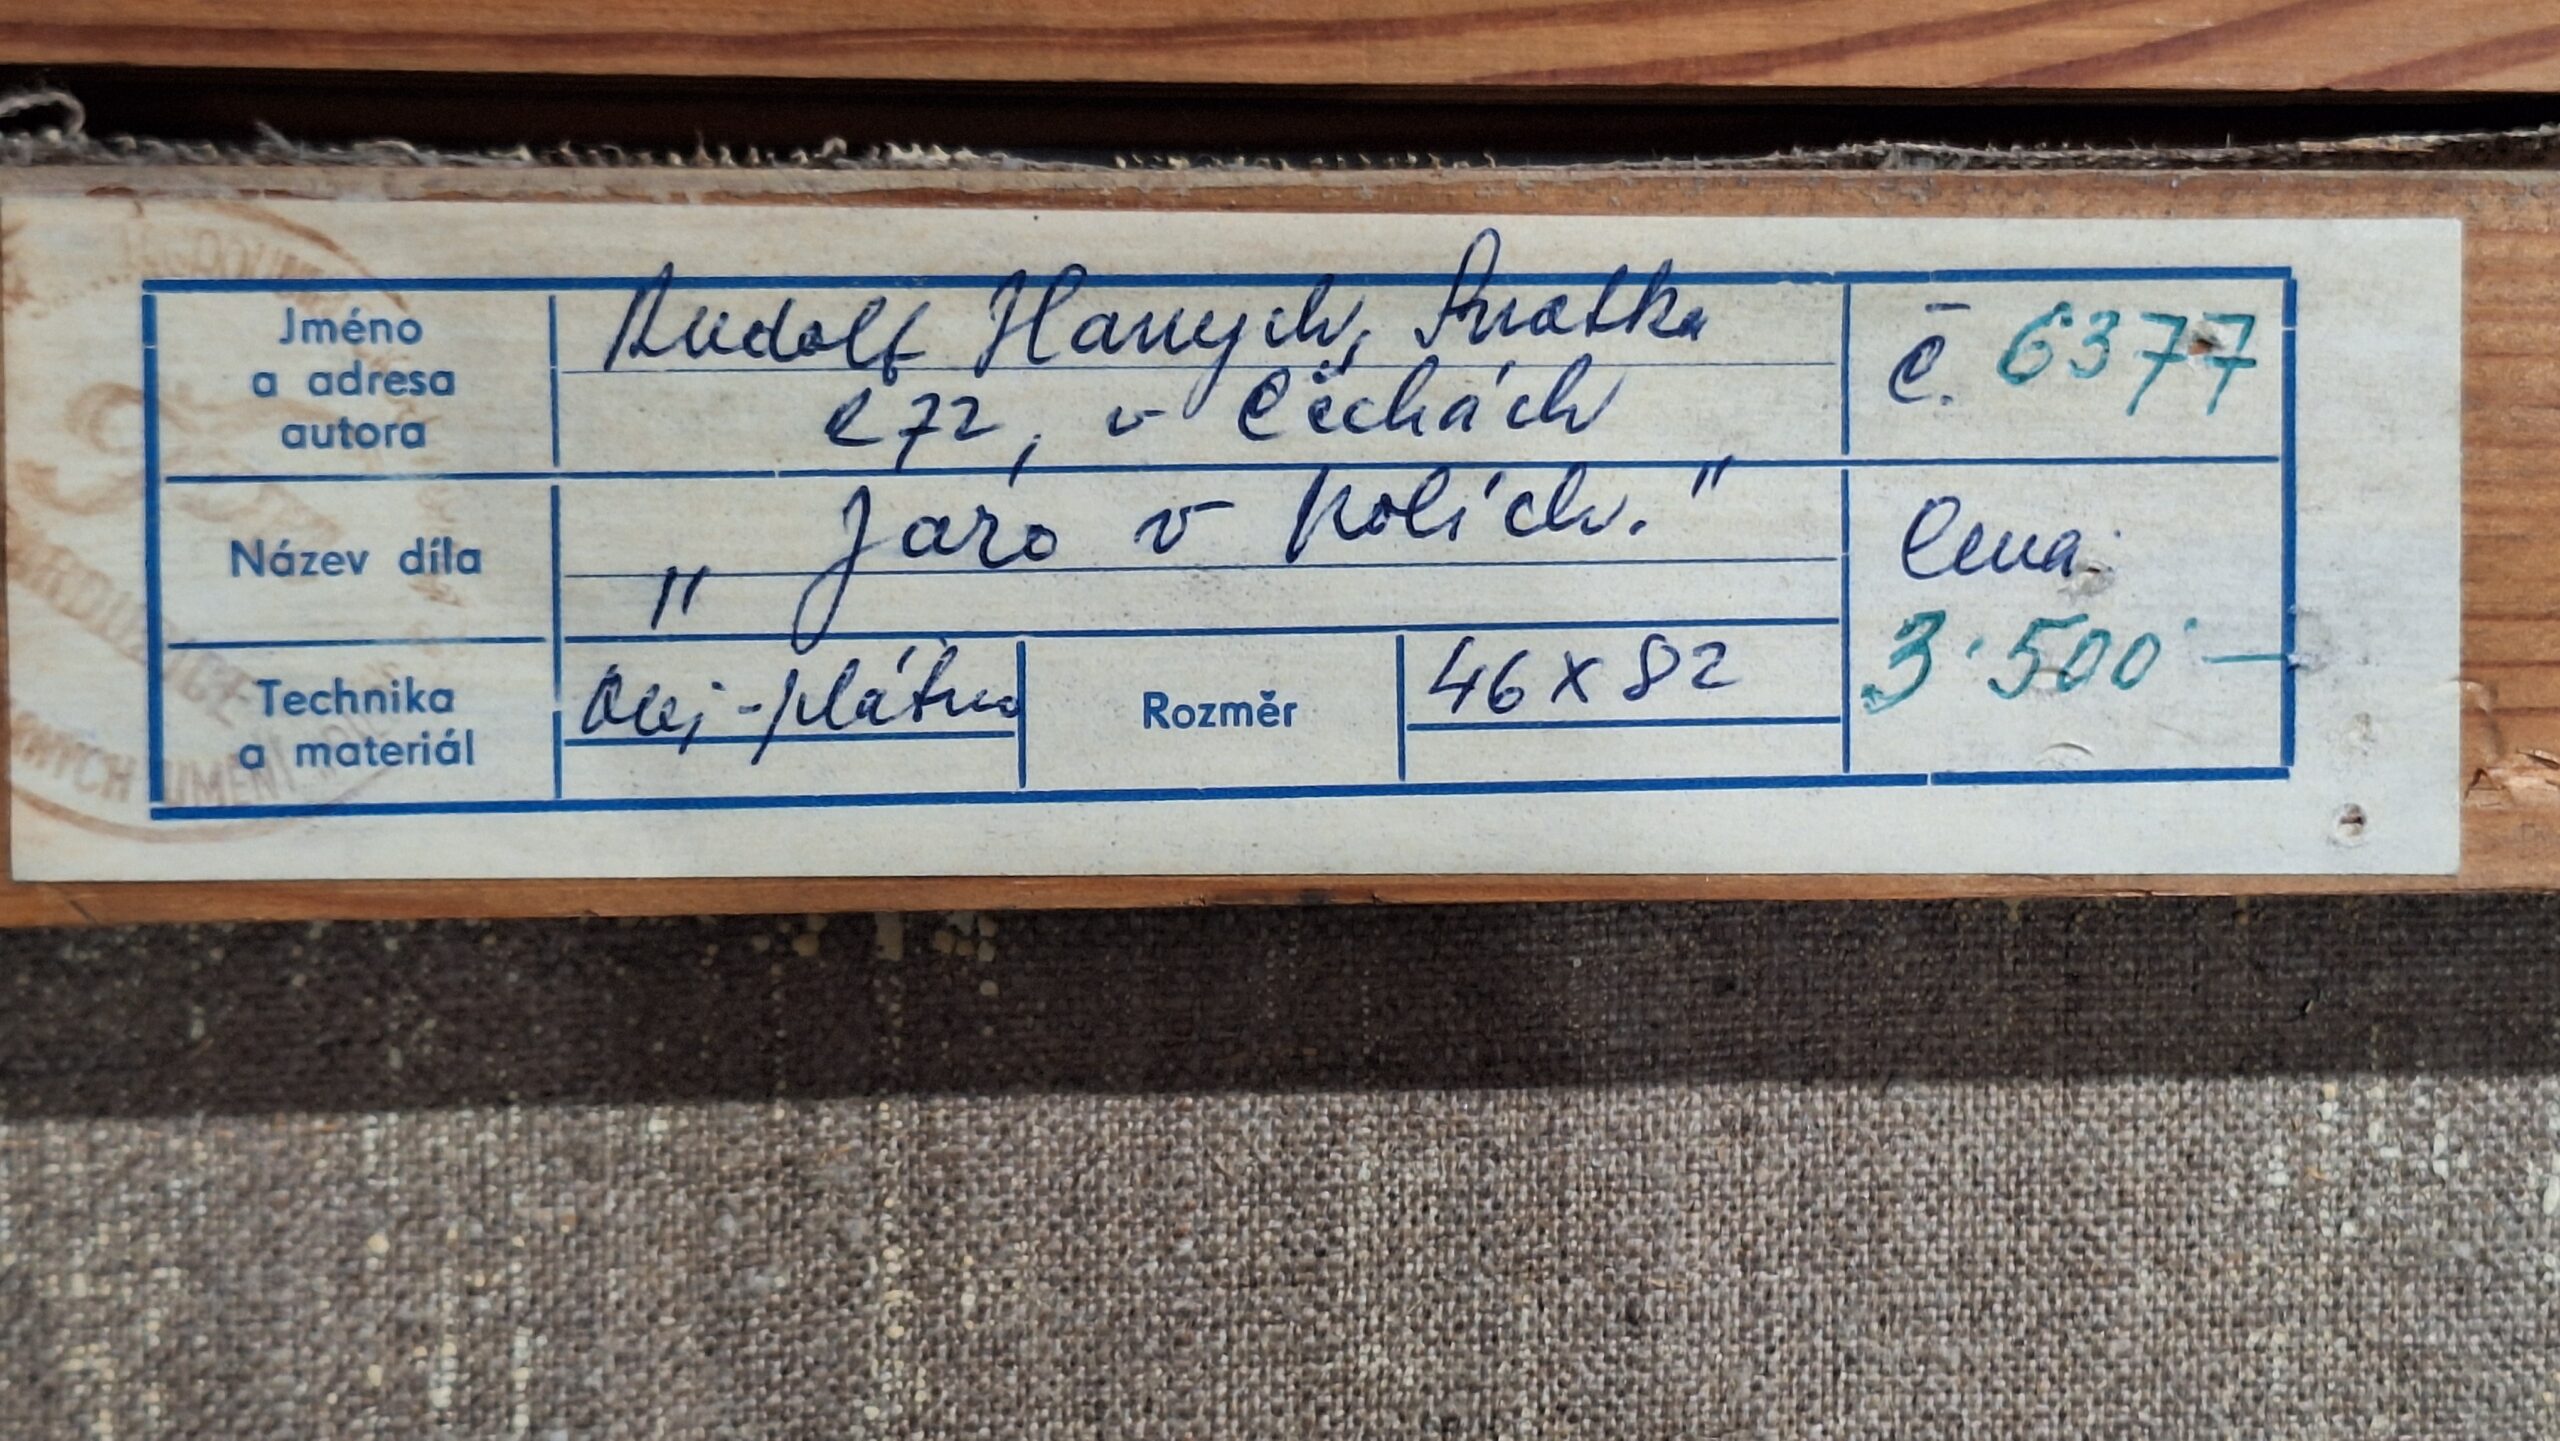 Jméno
a adresa
autora
Rudolf Hanych, Svratka
č 72, v Čechách
č. 6377
Název díla
„Jaro v Polích."
Cena:
3.500.—
Technika
a materiál
Olej-plátno
Rozměr
46 x 82
VÝCH UMĚNÍ